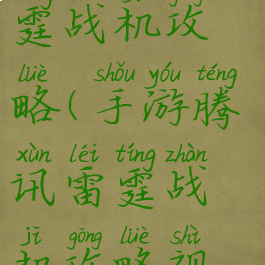 霆战机攻
lüè shǒu yóu téng
略(手游腾
xùn léi tíng zhàn
讯雷霆战
jī gōng lüè shì
机攻略视